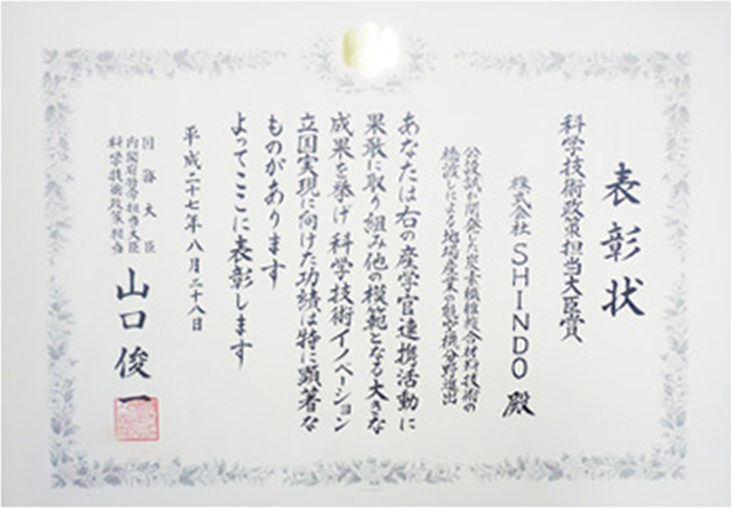 表彰状
科学技術政策担当大臣賞
株式会社 SHINDO 殿
公設試が開発した炭素繊維複合材料技術の
橋渡しによる地場産業の航空機分野進出
あなたは右の産学官連携活動に
果敢に取り組み他の模範となる大きな
成果を挙げ科学技術イノベーション
立国実現に向けた功績は特に顕著な
ものがあります
よってここに表彰します
平成二十七年八月二十八日
国務大臣
内閣府特命担当大臣
科学技術政策担当
山口俊一